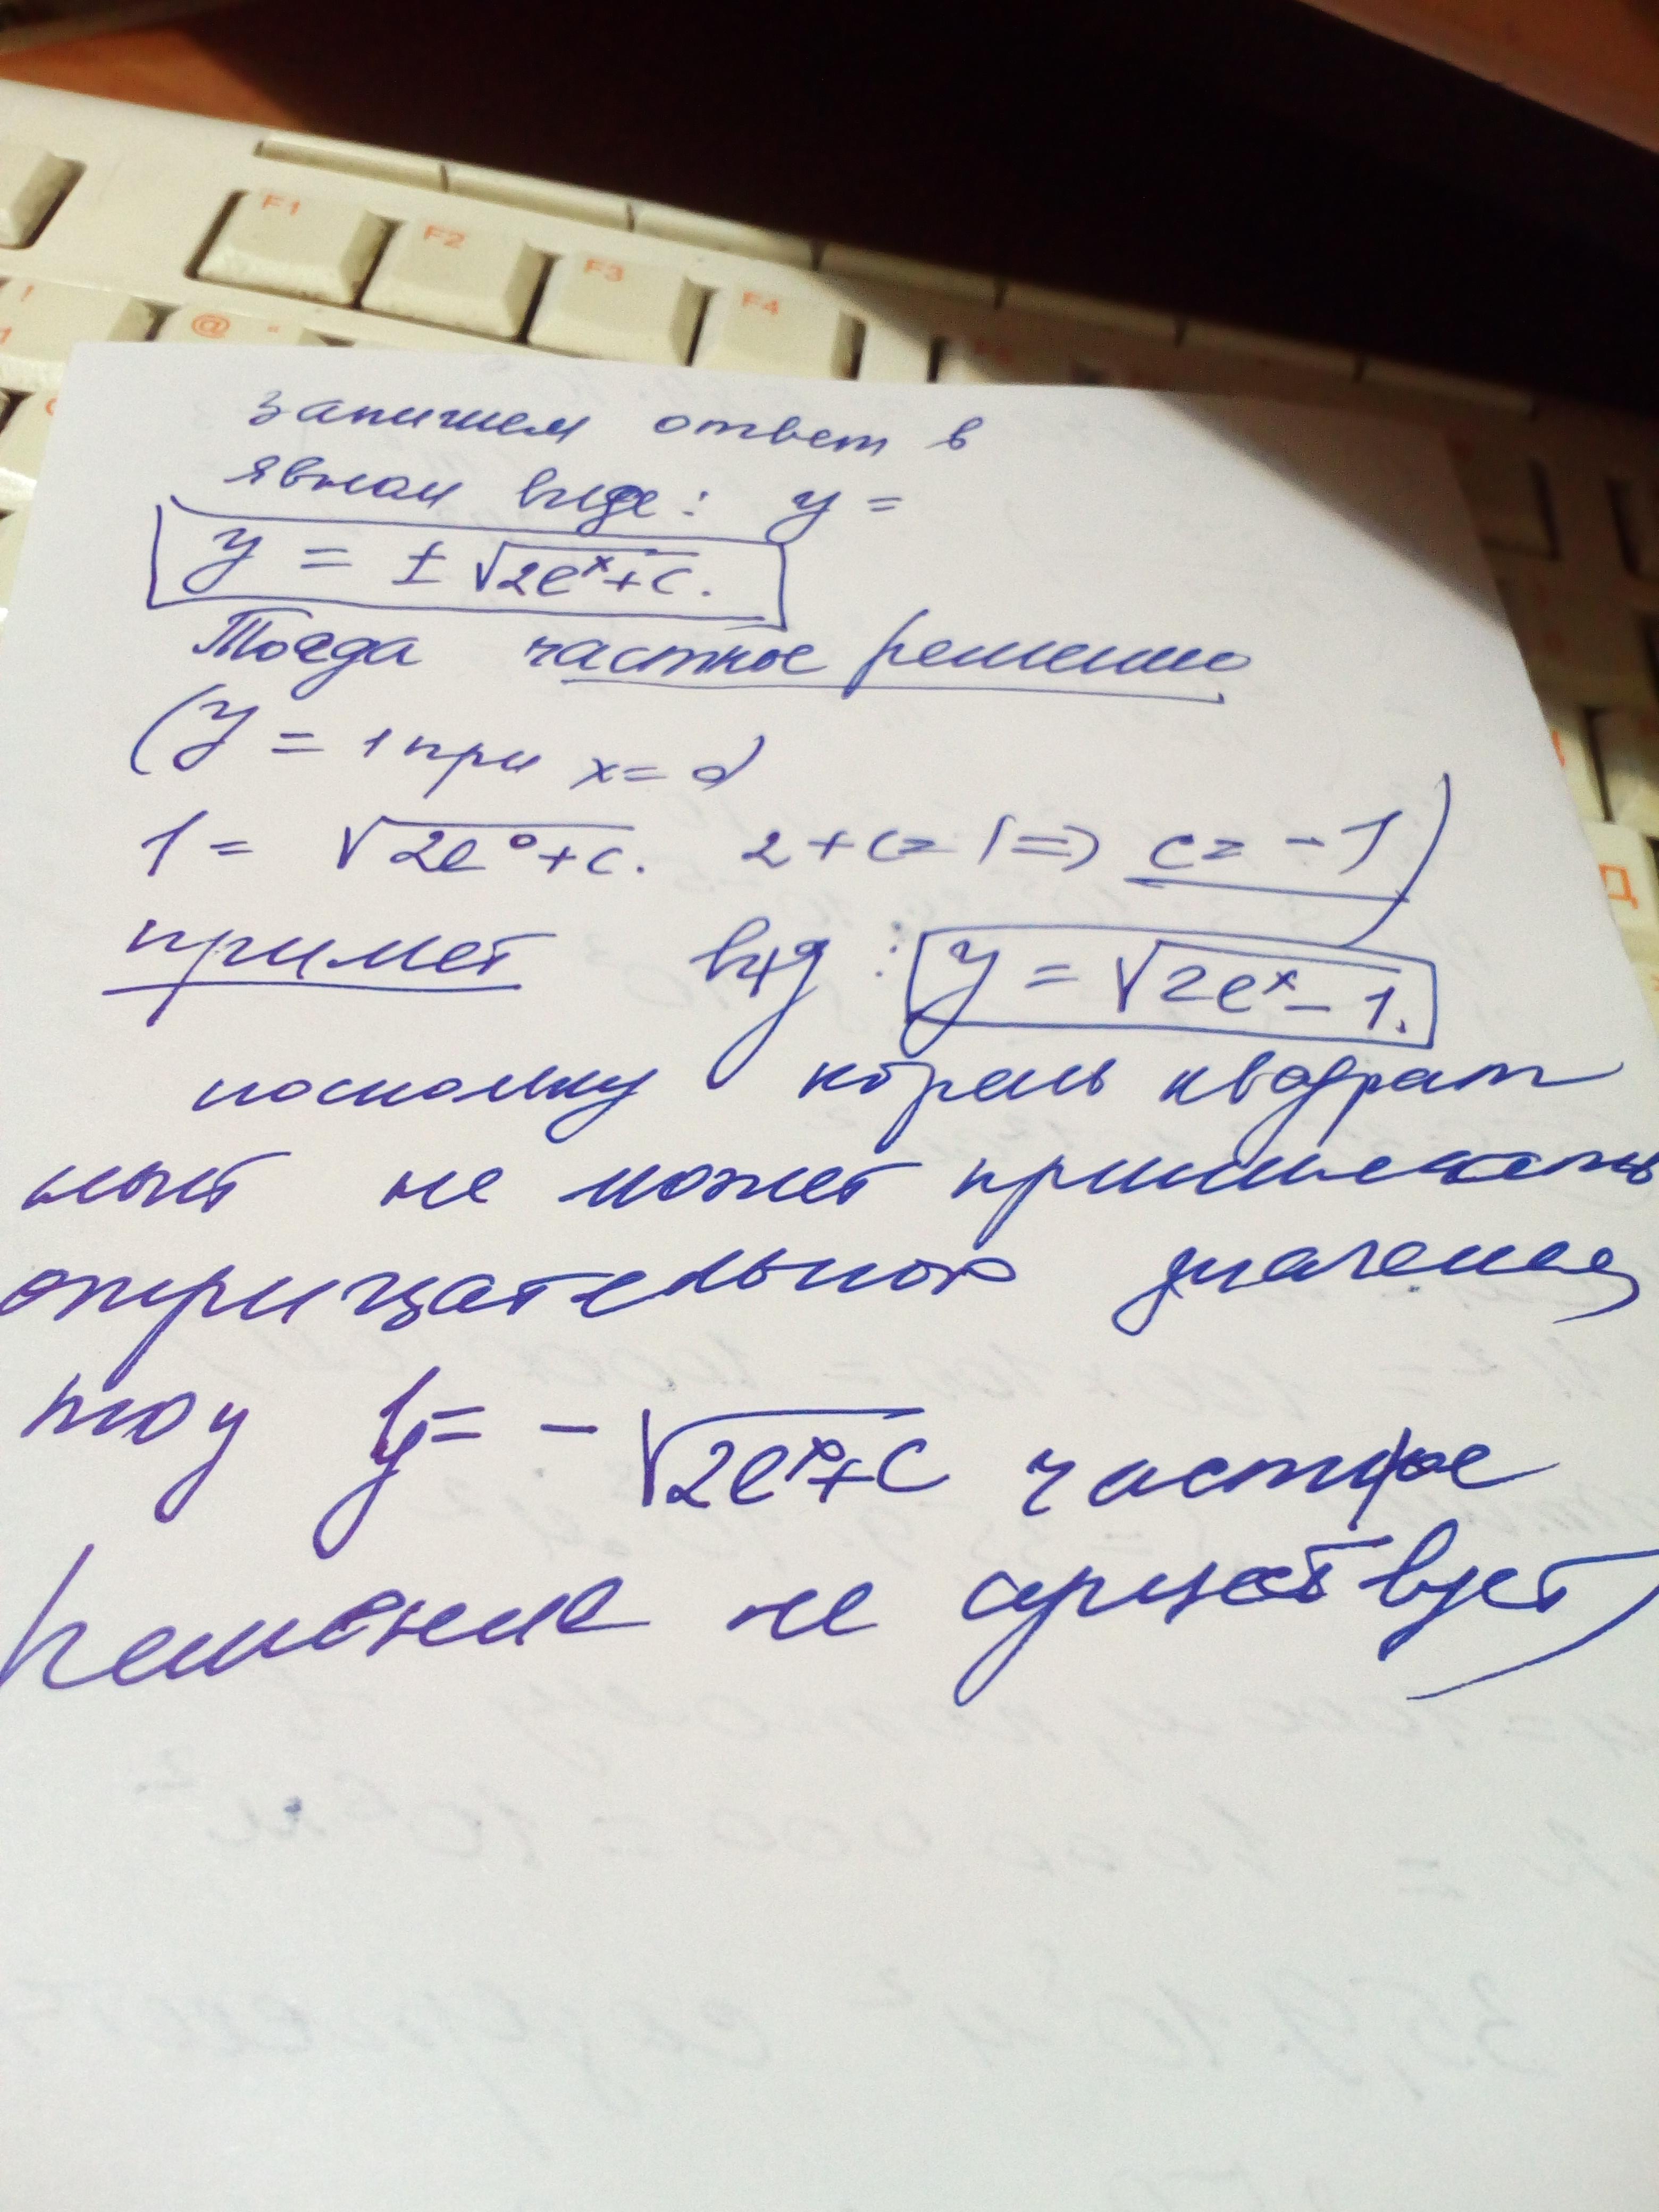 F1
F2
F3
F4
! 1
@ "
запишем ответ в
явном виде: y =
y = ± √2eˣ+c.
Тогда частное решение
(y = 1 при x = 0
1 = √2e⁰+c. 2+c=1 => c = -1)
примет вид: y = √2eˣ-1.
поскольку корень квадрат
ный не может принимать
отрицательного значения,
y = - √2e⁰+c частное
решение не существует)
Д